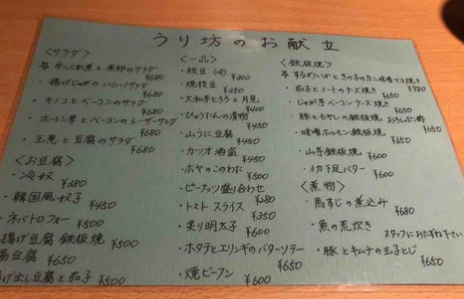 うり坊のお献立
<サラダ>
¥680
・揚げじゃがのパリパリサラダ
¥680
・キノコとベーコンのサラダ
¥680
・ホーレン草とベーコンのシーザーサラダ
¥680
・玉葱と豆腐のサラダ
¥680
<お豆腐>
・冷奴
¥380
・韓国風奴
¥450
・ネバトロフォー
¥500
揚げ豆腐 鉄板焼
¥500
湯豆腐
¥650
揚げ出し豆腐と茄子
¥500
<一品>
・枝豆(冷)
¥300
・焼枝豆
¥350
・大和芋とろろと月見
¥400
・ひょうたんの漬物
¥450
・山うに豆腐
¥450
・カツオ酒盗
¥450
・ホヤのこのわた
¥500
・ピーナッツ盛り合わせ
¥280
・トマトスライス
¥350
・炙り明太子
¥600
・ホタテとエリンギのバターソテー
¥650
・焼ビーフン
¥600
<鉄板焼>
¥780
・茄子とミートのチーズ焼き
¥650
・じゃが芋ベーコンチーズ焼き
¥650
・豚ともやしの鉄板焼 おろしポン酢
¥650
・味噌ホルモン鉄板焼
¥650
・山芋鉄板焼
¥600
・イカ下足バター
¥600
<煮物>
・馬すじの煮込み
¥680
・魚の荒炊き
スタッフにおたずね下さい
・豚とキムチの玉子とじ
¥650